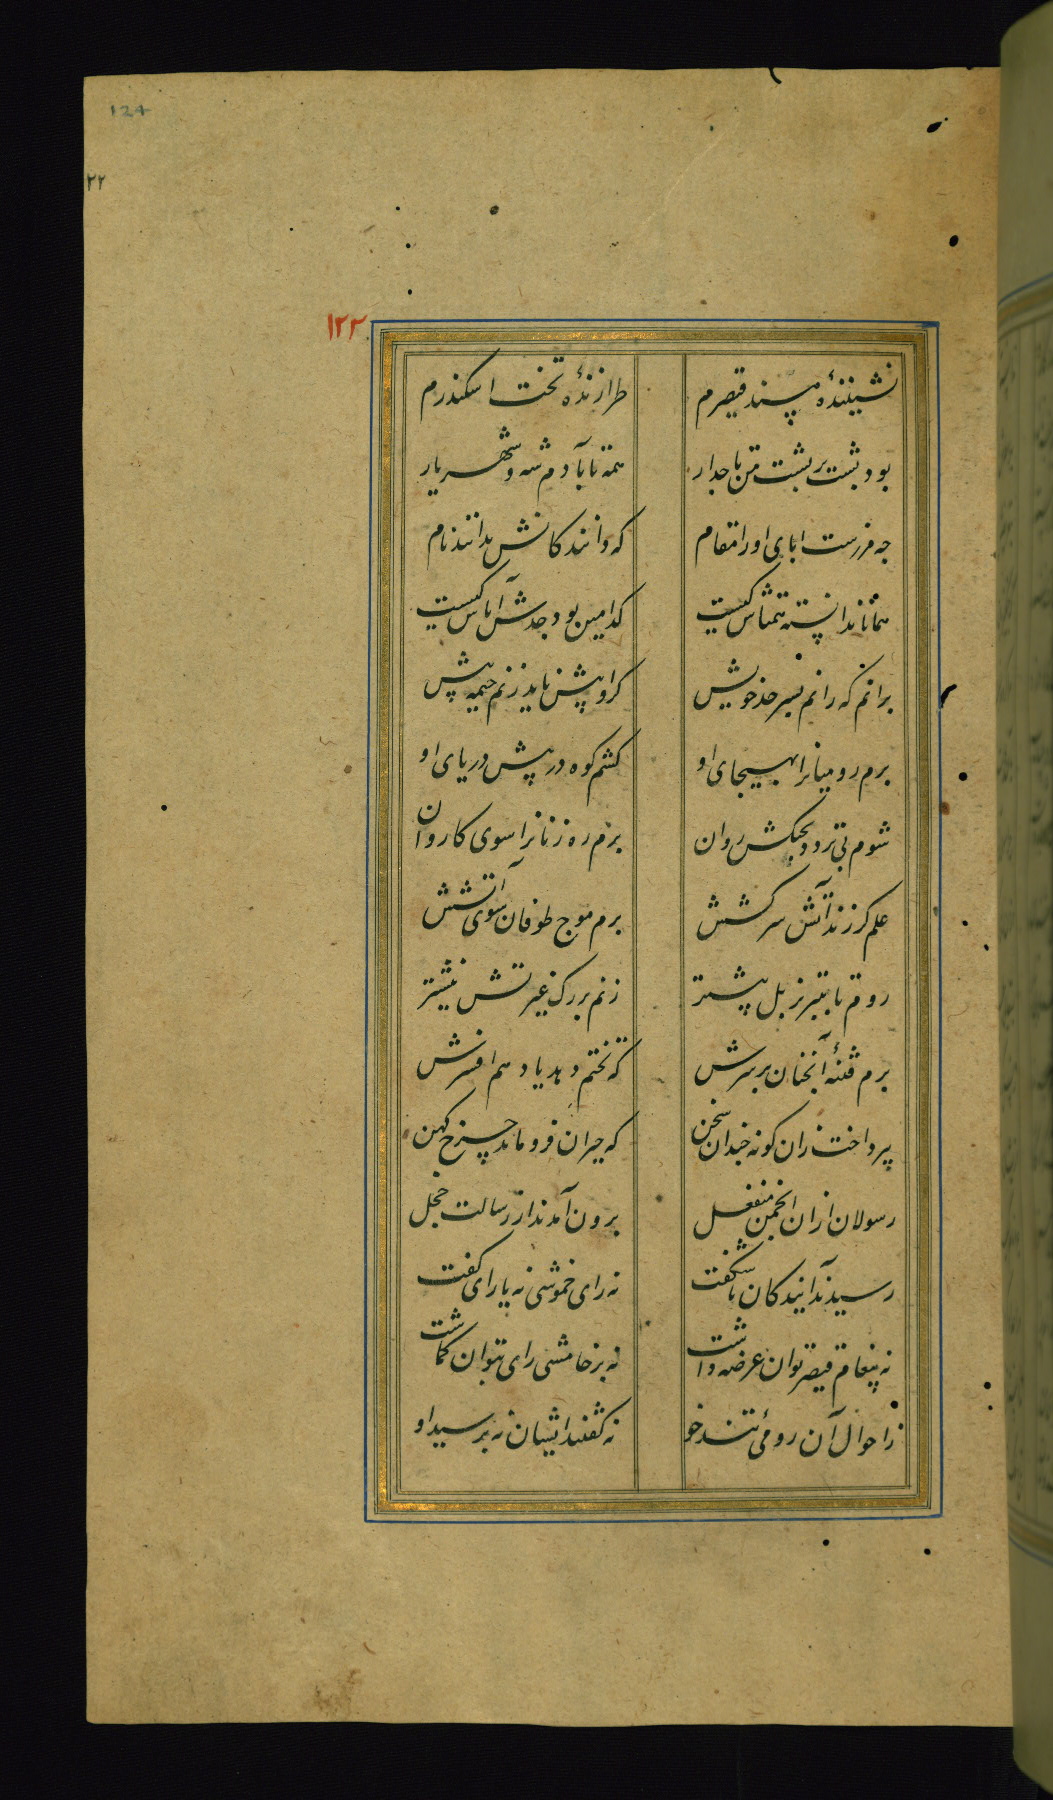 124
۲۲
۱۲۳
نشینندهٔ مسند قیصرم طرازندهٔ تخت اسکندرم
بود پشت بر پشت من تاجدار همه تا بآدم شه و شهریار
چه فررست ابای او را مقام که دانند کانش ندانند نام
همانا ندانسته همتاش کیست کدامین بود جدش آباش کیست
برانم که رانم بسرحد خویش کر او پیش ناید زنم خیمه پیش
برم رومیانرا بهیجای او کشم کوه در پیش دریای او
شوم بی تردد بجنکش روان برم ره زنانرا سوی کاروان
علم کر زند آتش سرکشش برم موج طوفان سوی آتشش
روم تا به تبریز بل پیشتر زنم بر رک غیرتش نیشتر
برم فتنهٔ آنچنان بر سرش که تختم دهد یا دهم افسرش
پرداخت زان کونه چندان سخن که حیران فرو ماند چرخ کهن
رسولان ازان انجمن منفعل برون آمدند از رسالت خجل
رسیدند آیندکان با شکفت نه رای خموشی نه یارای کفت
نه پیغام قیصر توان عرضه داشت نه بر خامشی رای بتوان کماشت
ز احوال آن رومیٔ تندخو نه کفتند ایشان نه پرسید او